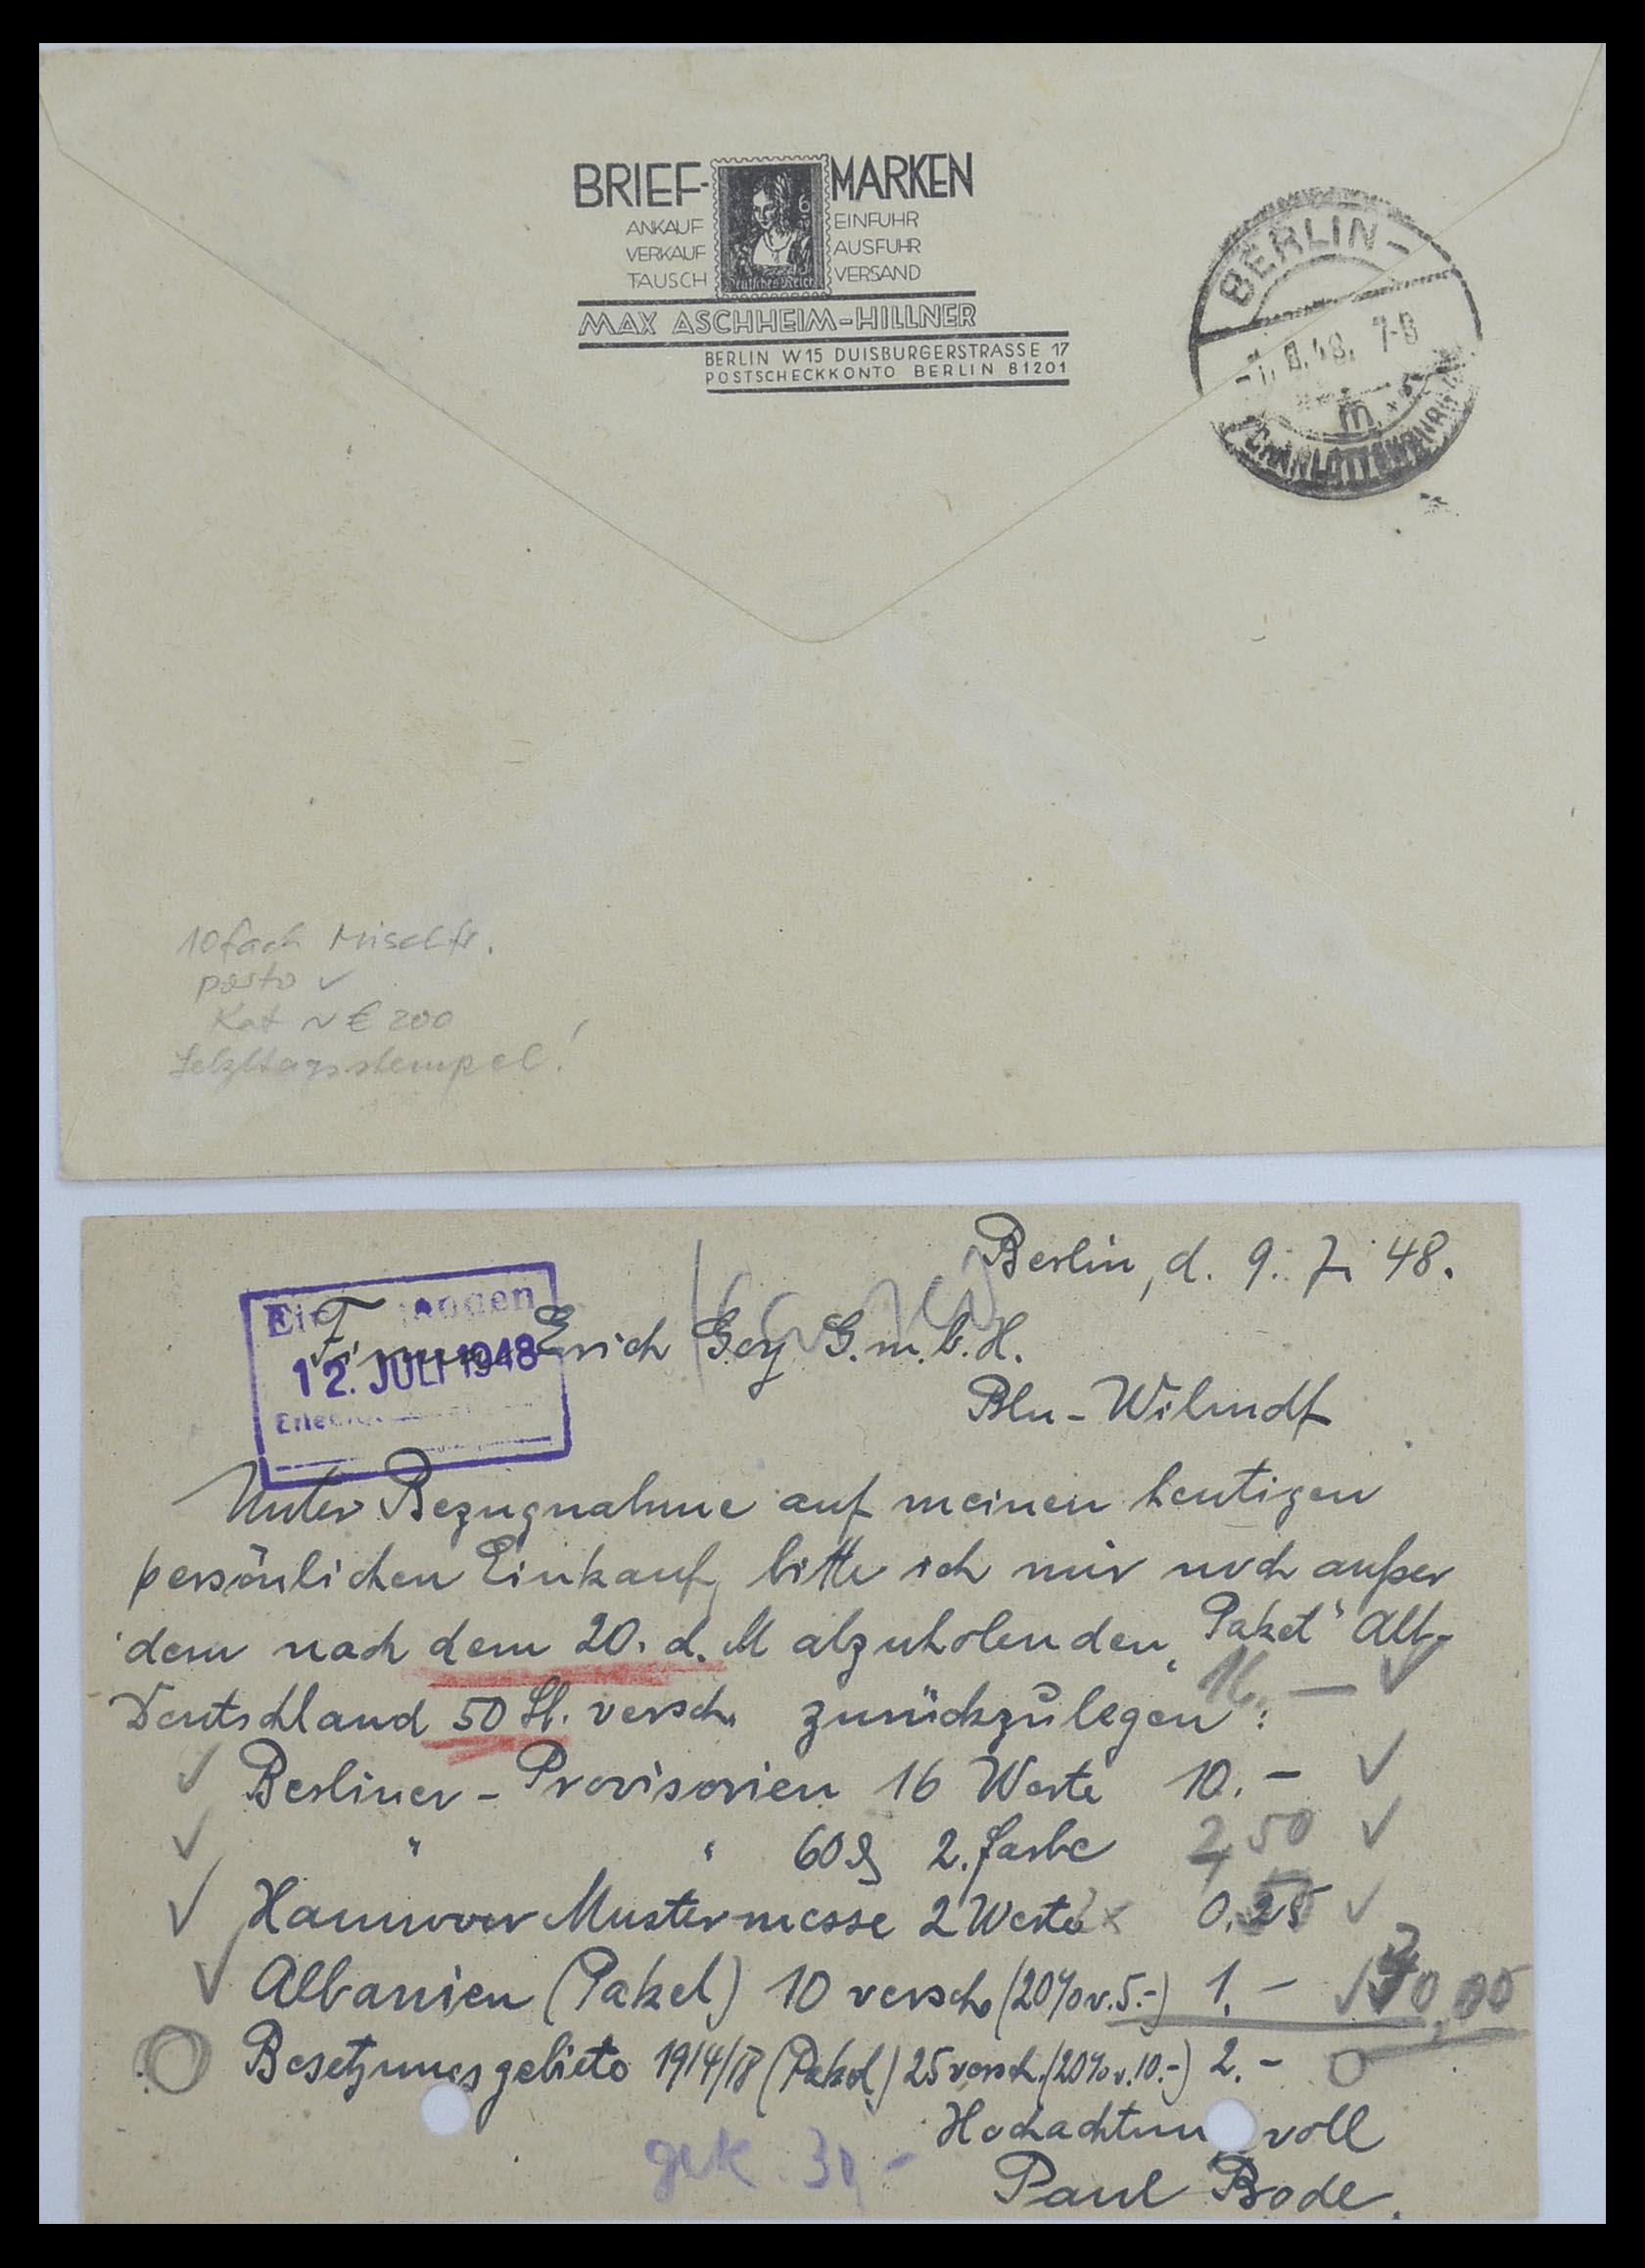 BRIEF-MARKEN
ANKAUF EINFUHR
VERKAUF AUSFUHR
TAUSCH VERSAND
6
Deutsches Reich
MAX ASCHHEIM-HILLNER
BERLIN W15 DUISBURGERSTRASSE 17
POSTSCHECKKONTO BERLIN 81201
BERLIN-
8.48. 7-8
m
CHARLOTTENBURG
10fach Mischfr.
porto ✓
Kat ~ € 200
Letzttagsstempel!
Berlin, d. 9. 7. 48.
12. JULI 1948
Firma Erich Gey G.m.b.H.
Bln-Wilmdf
Unter Bezugnahme auf meinen heutigen
persönlichen Einkauf, bitte ich mir noch außer
dem nach dem 20. d. M abzuholenden „Paket“ Alt-
Deutschland 50 St. versch. zurückzulegen:
16.—
✓ Berliner-Provisorien 16 Werte 10.- ✓
✓ " " 60₰ 2. Farbe 2,50 ✓
✓ Hannover Mustermesse 2 Werte 0,25 ✓
✓ Albanien (Paket) 10 versch. (20% v. 5.-) 1.-
Besetzungsgebiete 1914/18 (Paket) 25 versch. (20% v. 10.-) 2.-
Hochachtungsvoll
Paul Bode.